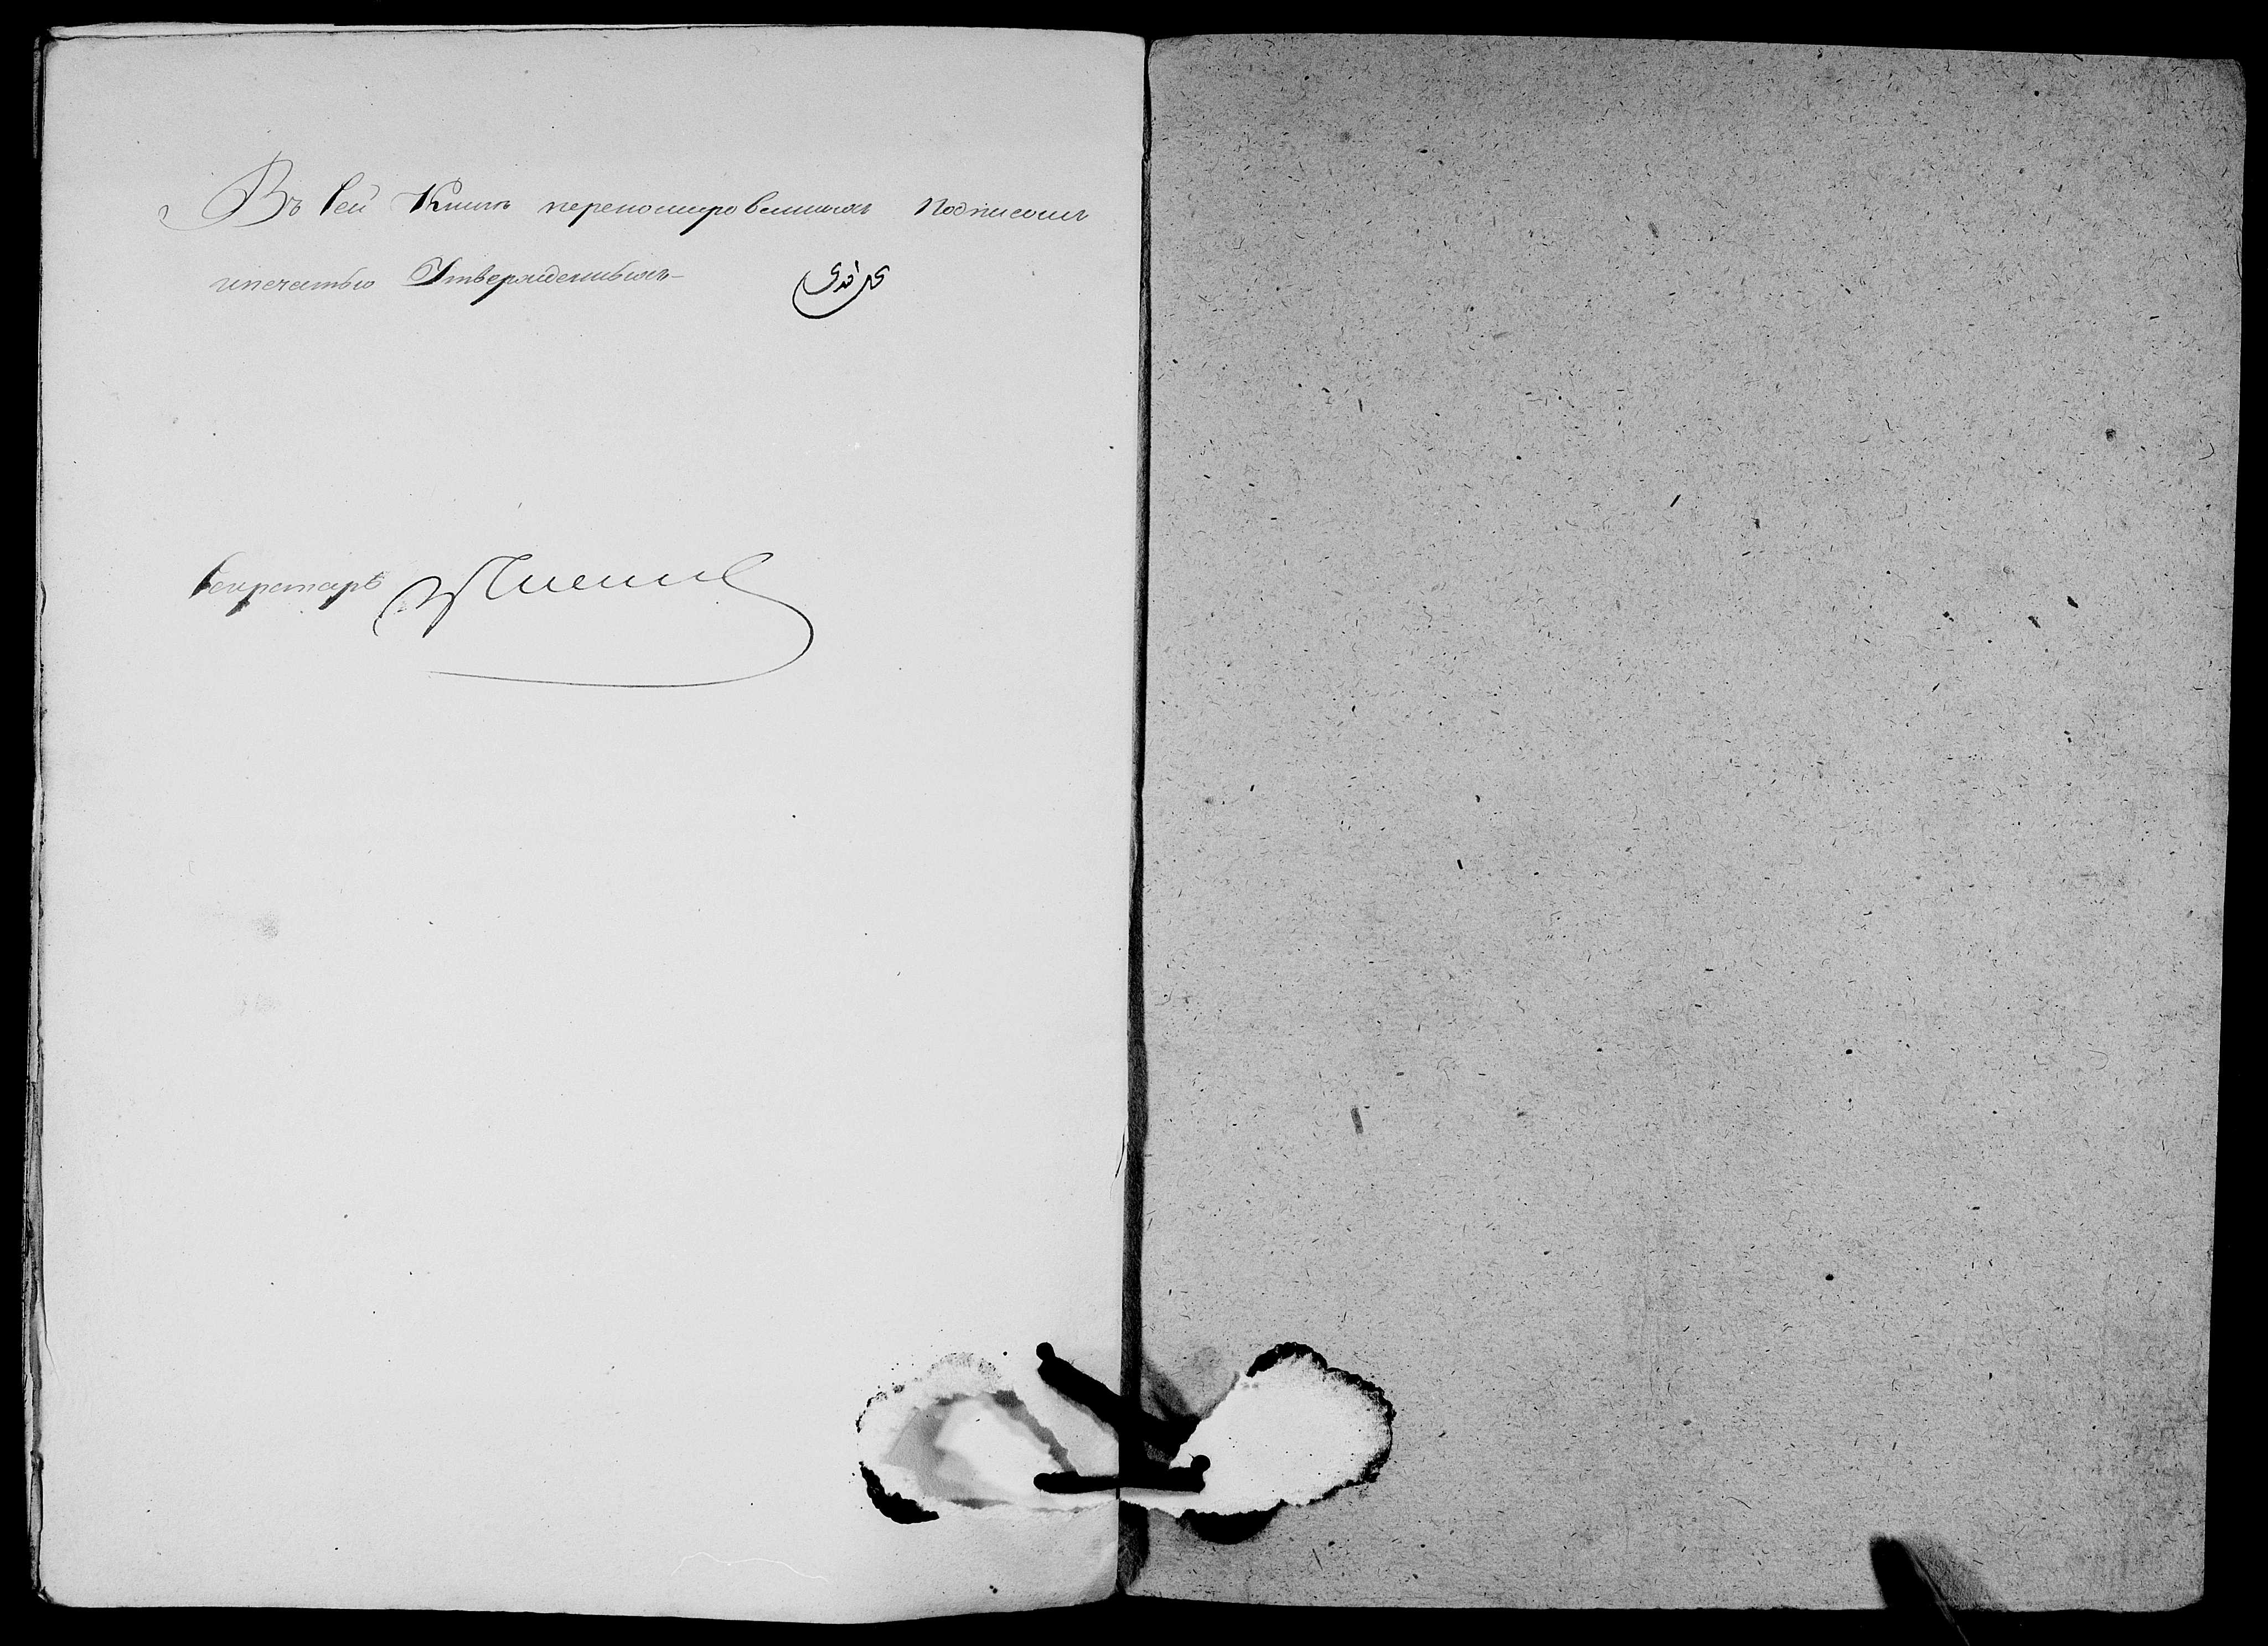 Въ сей Книгѣ переномированныхъ подписомъ
ипечатью Утвержденныхъ
Секретарь